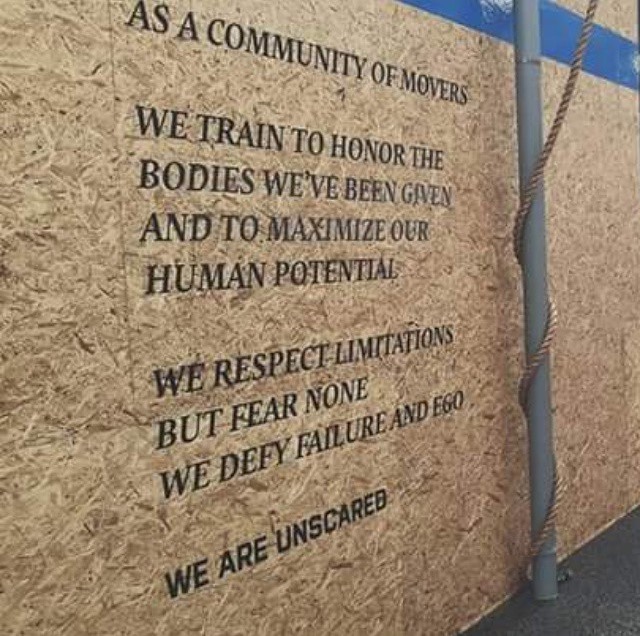 AS A COMMUNITY OF MOVERS
WE TRAIN TO HONOR THE
BODIES WE'VE BEEN GIVEN
AND TO MAXIMIZE OUR
HUMAN POTENTIAL
WE RESPECT LIMITATIONS
BUT FEAR NONE
WE DEFY FAILURE AND EGO
WE ARE UNSCARED